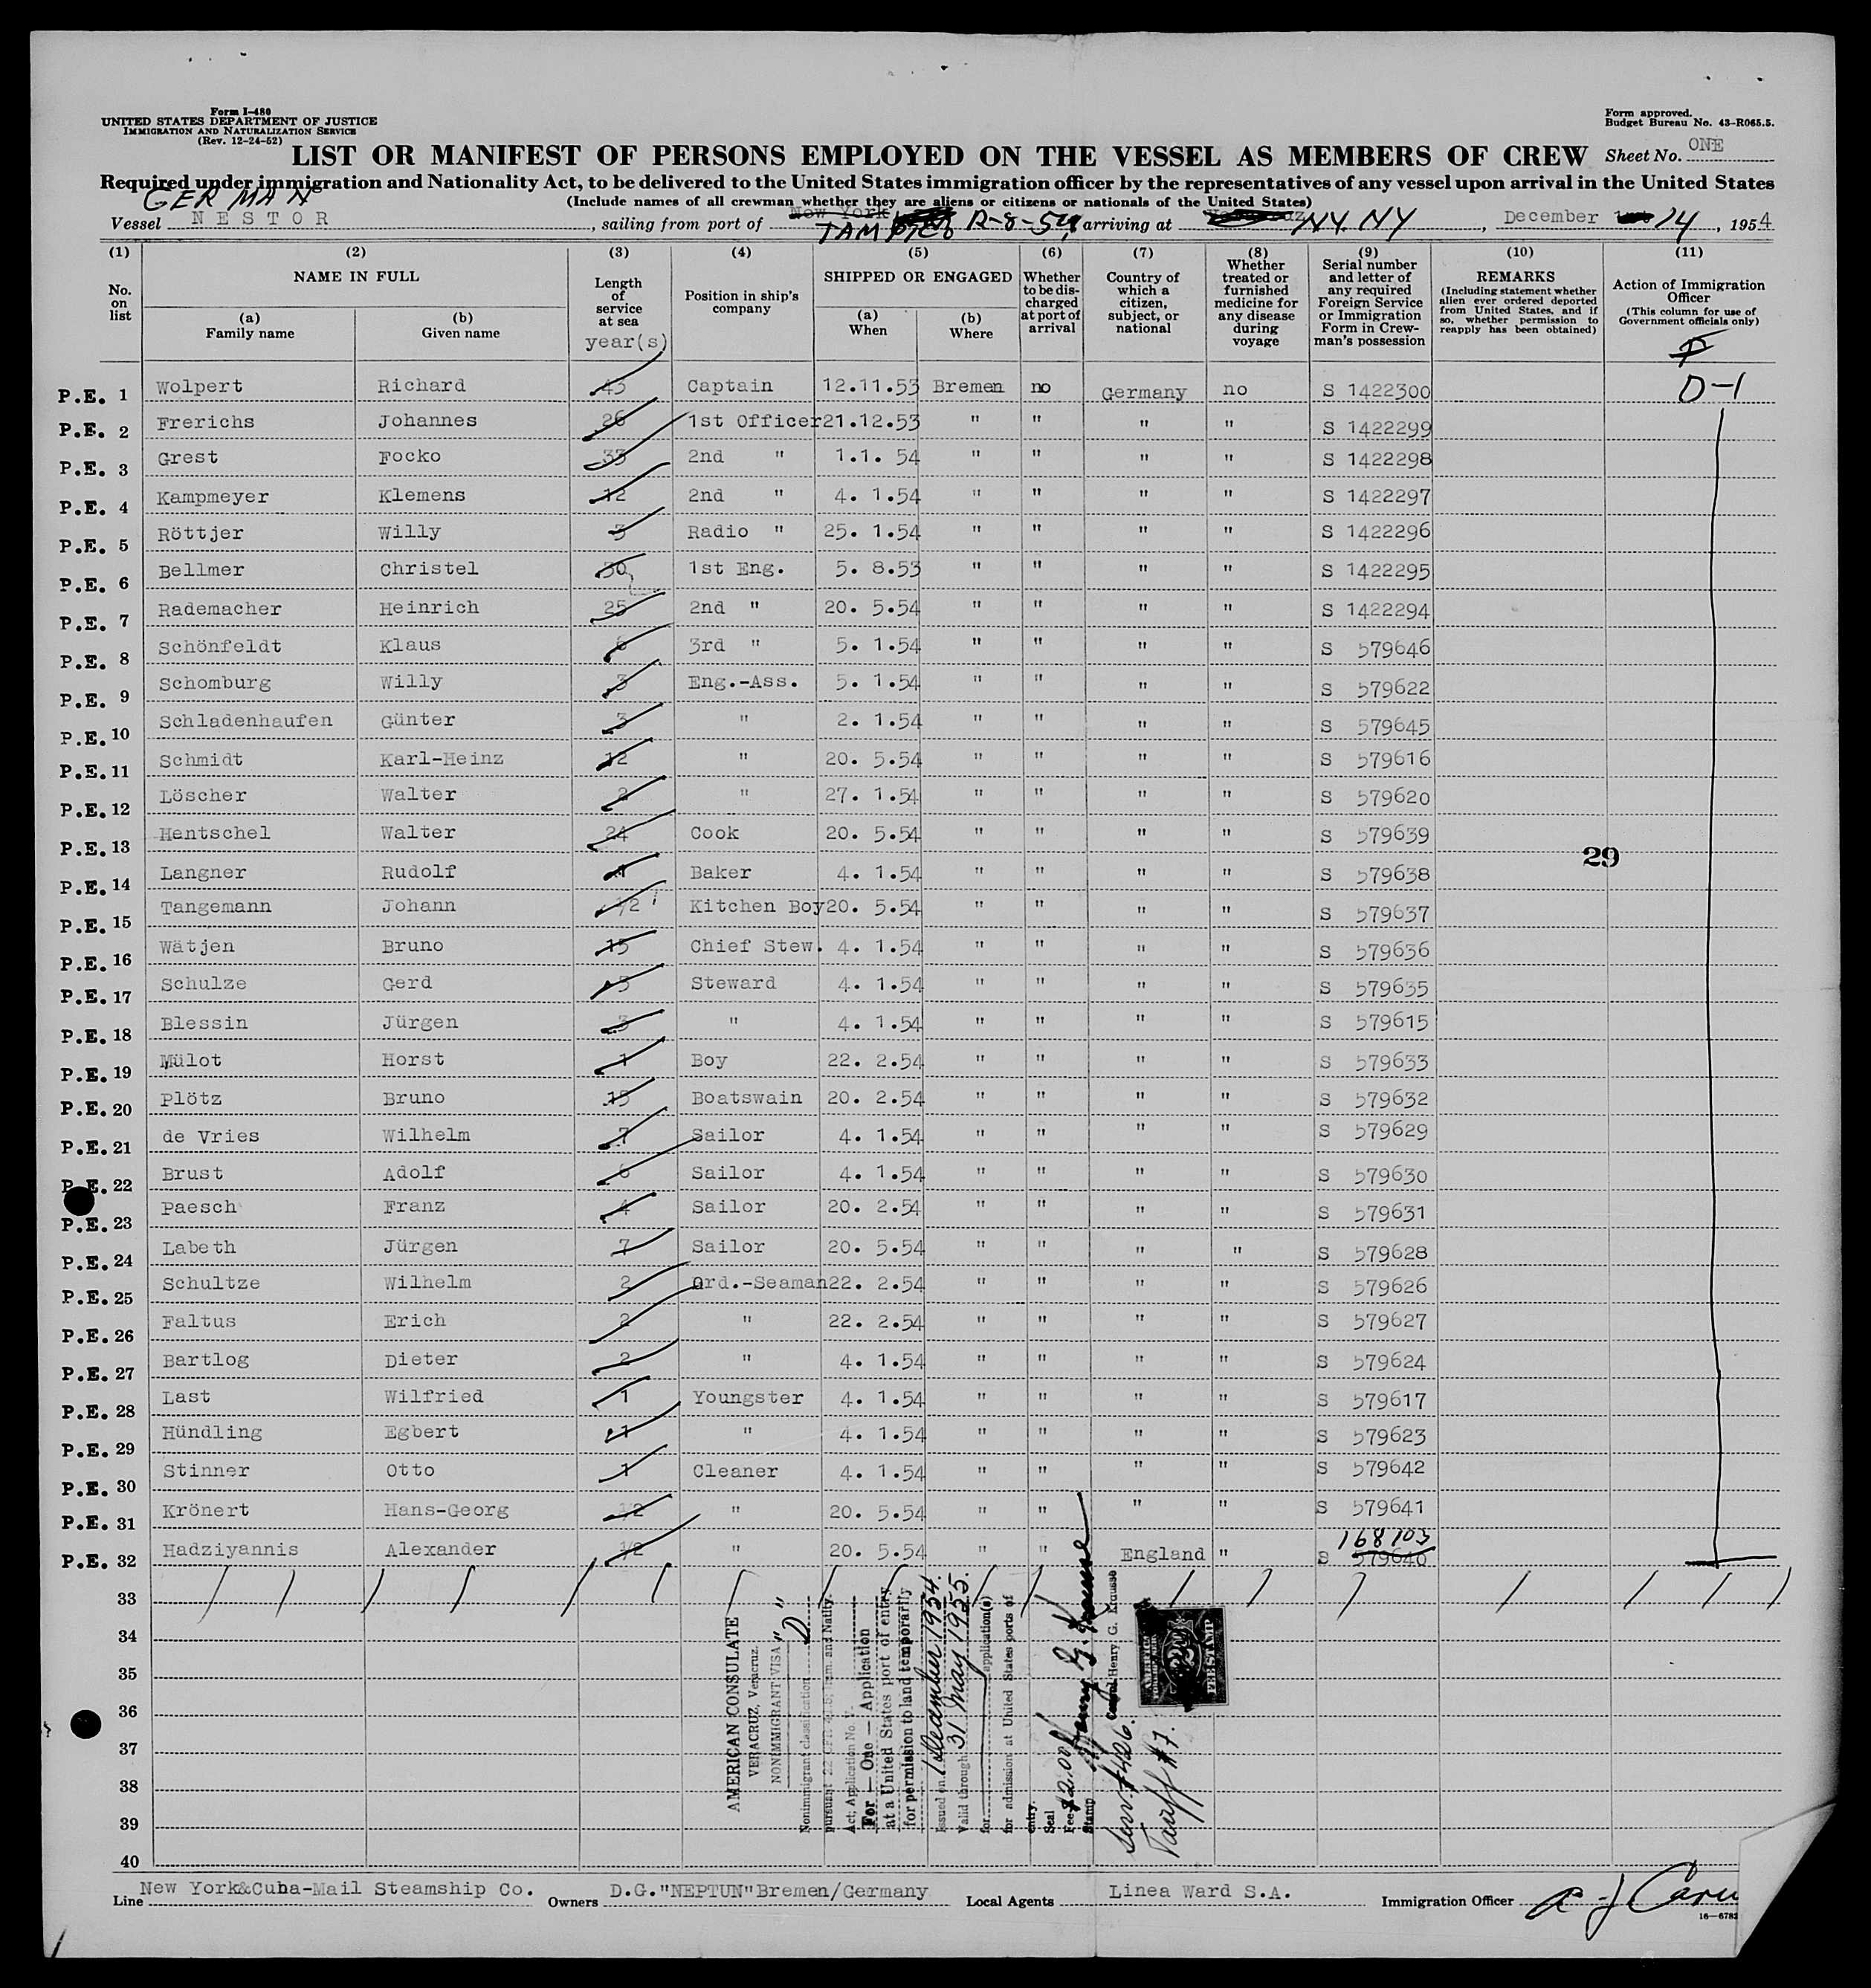 Form I-480
UNITED STATES DEPARTMENT OF JUSTICE
IMMIGRATION AND NATURALIZATION SERVICE
(Rev. 12-24-52)
Form approved.
Budget Bureau No. 43-R065.5.
LIST OR MANIFEST OF PERSONS EMPLOYED ON THE VESSEL AS MEMBERS OF CREW Sheet No. ONE
Required under immigration and Nationality Act, to be delivered to the United States immigration officer by the representatives of any vessel upon arrival in the United States
(Include names of all crewman whether they are aliens or citizens or nationals of the United States)
GERMAN
Vessel NESTOR, sailing from port of New York TAMPICO 12-8-54, arriving at NY. NY, December 14, 1954
(1) (2) (3) (4) (5) (6) (7) (8) (9) (10) (11)
No. on list
NAME IN FULL
(a) Family name
(b) Given name
Length of service at sea
year(s)
Position in ship's company
SHIPPED OR ENGAGED
(a) When
(b) Where
Whether to be discharged at port of arrival
Country of which a citizen, subject, or national
Whether treated or furnished medicine for any disease during voyage
Serial number and letter of any required Foreign Service or Immigration Form in Crewman's possession
REMARKS
(Including statement whether alien ever ordered deported from United States, and if so, whether permission to reapply has been obtained)
Action of Immigration Officer
(This column for use of Government officials only)
P.E. 1 Wolpert Richard 43 Captain 12.11.53 Bremen no Germany no S 1422300 D-1
P.E. 2 Frerichs Johannes 26 1st Officer 21.12.53 " " " " S 1422299
P.E. 3 Grest Focko 33 2nd " 1.1. 54 " " " " S 1422298
P.E. 4 Kampmeyer Klemens 12 2nd " 4. 1.54 " " " " S 1422297
P.E. 5 Röttjer Willy 3 Radio " 25. 1.54 " " " " S 1422296
P.E. 6 Bellmer Christel 30 1st Eng. 5. 8.53 " " " " S 1422295
P.E. 7 Rademacher Heinrich 25 2nd " 20. 5.54 " " " " S 1422294
P.E. 8 Schönfeldt Klaus 3rd " 5. 1.54 " " " " S 579646
P.E. 9 Schomburg Willy 3 Eng.-Ass. 5. 1.54 " " " " S 579622
P.E. 10 Schladenhaufen Günter 3 " 2. 1.54 " " " " S 579645
P.E. 11 Schmidt Karl-Heinz 12 " 20. 5.54 " " " " S 579616
P.E. 12 Löscher Walter 2 " 27. 1.54 " " " " S 579620
P.E. 13 Hentschel Walter 24 Cook 20. 5.54 " " " " S 579639
29
P.E. 14 Langner Rudolf Baker 4. 1.54 " " " " S 579638
P.E. 15 Tangemann Johann 1/2 Kitchen Boy 20. 5.54 " " " " S 579637
P.E. 16 Wätjen Bruno 15 Chief Stew. 4. 1.54 " " " " S 579636
P.E. 17 Schulze Gerd 3 Steward 4. 1.54 " " " " S 579635
P.E. 18 Blessin Jürgen 3 " 4. 1.54 " " " " S 579615
P.E. 19 Mülot Horst 1 Boy 22. 2.54 " " " " S 579633
P.E. 20 Plötz Bruno 15 Boatswain 20. 2.54 " " " " S 579632
P.E. 21 de Vries Wilhelm 7 Sailor 4. 1.54 " " " " S 579629
P.E. 22 Brust Adolf 6 Sailor 4. 1.54 " " " " S 579630
P.E. 23 Paesch Franz 4 Sailor 20. 2.54 " " " " S 579631
P.E. 24 Labeth Jürgen 7 Sailor 20. 5.54 " " " " S 579628
P.E. 25 Schultze Wilhelm 2 Ord.-Seaman 22. 2.54 " " " " S 579626
P.E. 26 Faltus Erich 2 " 22. 2.54 " " " " S 579627
P.E. 27 Bartlog Dieter 2 " 4. 1.54 " " " " S 579624
P.E. 28 Last Wilfried 1 Youngster 4. 1.54 " " " " S 579617
P.E. 29 Hündling Egbert 1 " 4. 1.54 " " " " S 579623
P.E. 30 Stinner Otto 1 Cleaner 4. 1.54 " " " " S 579642
P.E. 31 Krönert Hans-Georg 1/2 " 20. 5.54 " " " " S 579641
168103
P.E. 32 Hadziyannis Alexander 1/2 " 20. 5.54 " " England " S 579640
33
34
35
36
37
38
39
40
AMERICAN CONSULATE
VERACRUZ, Veracruz.
NONIMMIGRANT VISA
Nonimmigrant classification "D"
pursuant 22 CFR 41.5; Imm. and Natlty.
Act; Application No. V.
For — One — Application
at a United States port of entry
for permission to land temporarily
Issued on 1 December 1954.
Valid through 31 May 1955.
for application(s)
for admission at United States ports of
entry.
Seal
Fee $2.00
Stamp
Henry G. Krausse
Consul Henry G. Krausse
Serv. #426.
Tariff #7.
AMERICAN
FEE STAMP
Line New York&Cuba-Mail Steamship Co. Owners D.G."NEPTUN"Bremen/Germany Local Agents Linea Ward S.A. Immigration Officer